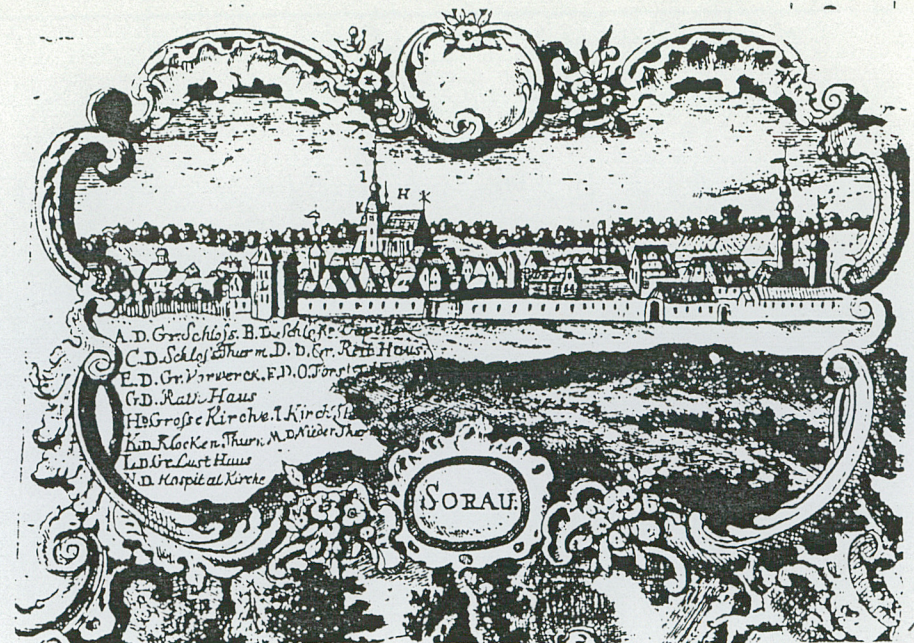 I
K H K
A. D. Gr. Schloss. B. D. Schloss
C. D. Schloss Thurm. D. D. Gr. Reit Haus
E. D. Gr. Vorwerck. F. D. O.
G D. Rath Haus
H D Grosse Kirche. I Kirch
K D. Klocken Thurn. M. D Nieder
L. D. Gr. Lust Huus
N. D. Hospital Kirche
SORAU.